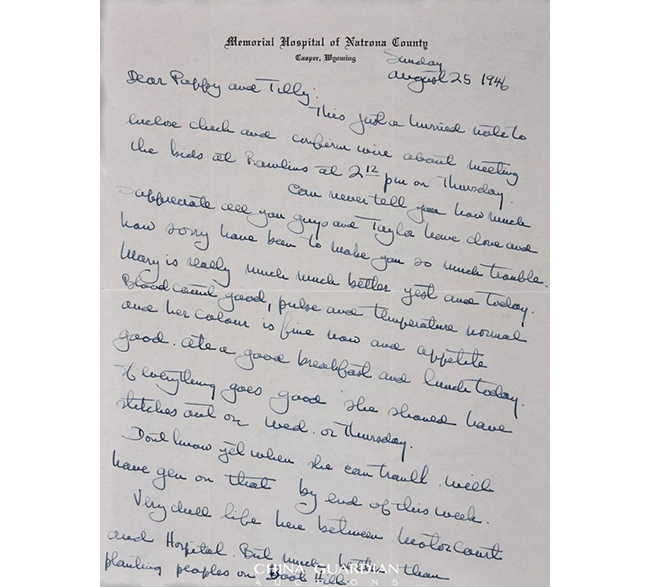 Memorial Hospital of Natrona County
Casper, Wyoming
Sunday
August 25 1946
Dear Pappy and Tilly:
This just a hurried note to
enclose check and confirm wire about meeting
the kids at Rawlins at 2 12 pm on Thursday.
Can never tell you how much
I appreciate all you guys and Taylor have done and
how sorry have been to make you so much trouble.
Mary is really much much better yest and today.
Blood count good, pulse and temperature normal
and her colour is fine now and appetite
good. Ate a good breakfast and lunch today.
If everything goes good she should have
stitches out on Wed. or Thursday.
Dont know yet when she can travell. Will
have gen on that by end of this week.
Very dull life here between Motor Court
and Hospital. But much better than
planting peoples on Boot Hill.
CHINA GUARDIAN
AUCTIONS